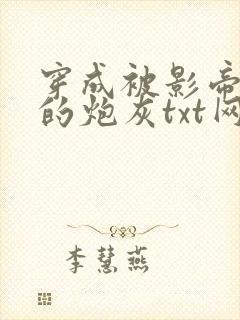 穿成被影帝
的炮灰txt网
李慧燕